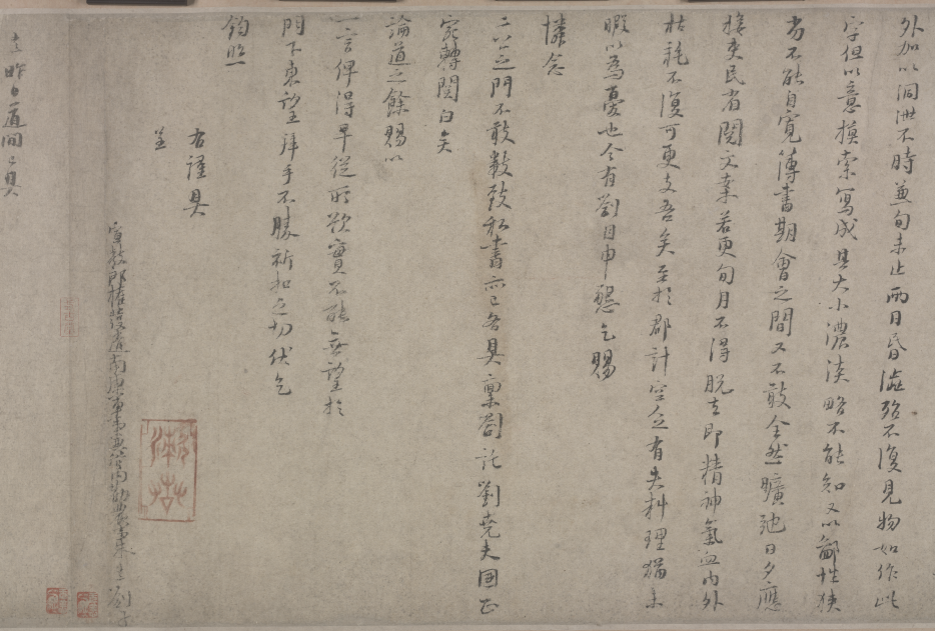 外加以洞泄不時兼旬未止兩目昏澁殆不復見物如作此
字但以意摸索寫成其大小濃淡略不能知又以鄙性狹
劣不能自寬簿書期會之間又不敢全然曠弛日夕應
接吏民省閱文案若更旬月不得脫去即精神氣血內外
枯耗不復可更支吾矣至於郡計空乏有失料理猶未
暇以為憂也今有劄目申懇乞賜
憐念
二公之門不敢數致私書亦已各具稟劄託劉堯夫國正
宛轉関白矣
論道之餘賜以
一言俾得早從所欲實不能無望於
門下東望拜手不勝祈扣之切伏乞
鈞照
右謹具
呈
宣教郎權發遣南康軍事兼管內勸農事朱熹劄子
熹昨日道間已具